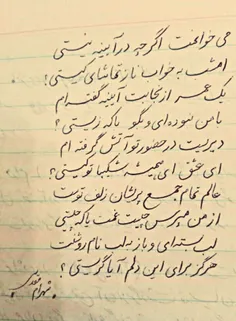 می خوانمت اگرچه در آیینه نیستی
امشب به خواب ناز تماشای کیستی؟
یک عمر از نجابت آیینه گفته ام
با من نبوده ای و بگو با که زیستی؟
دیریست در حضور تو آتش گرفته ام
ای عشق ای همیشه شکیبا تو کیستی؟
حالم تمام جمع پریشان زلف توست
از من مپرس چیست غمت یا که چیستی
لب بسته ای و باز به لب نام روشنت
هرگز برای این دلم آیا گریستی؟
شهرام